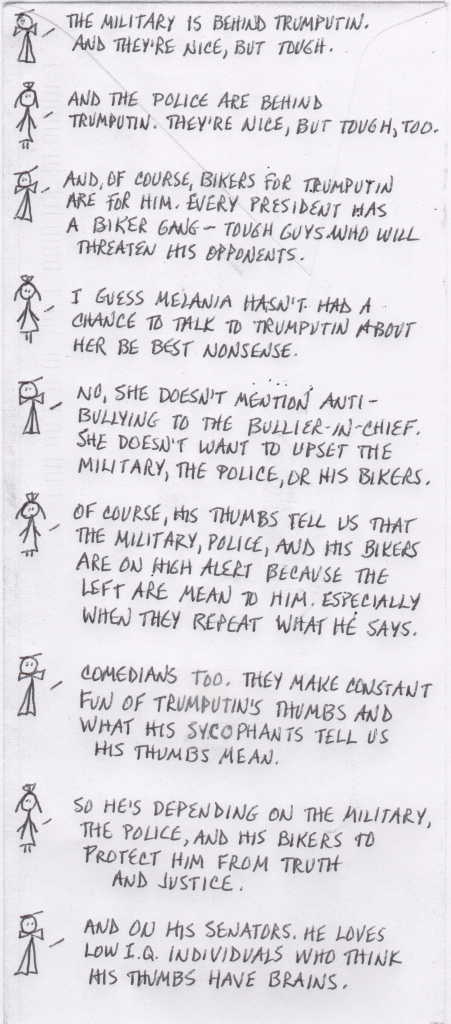 THE MILITARY IS BEHIND TRUMPUTIN.
AND THEY'RE NICE, BUT TOUGH.
AND THE POLICE ARE BEHIND
TRUMPUTIN. THEY'RE NICE, BUT TOUGH, TOO.
AND, OF COURSE, BIKERS FOR TRUMPUTIN
ARE FOR HIM. EVERY PRESIDENT HAS
A BIKER GANG - TOUGH GUYS WHO WILL
THREATEN HIS OPPONENTS.
I GUESS MELANIA HASN'T HAD A
CHANCE TO TALK TO TRUMPUTIN ABOUT
HER BE BEST NONSENSE.
NO, SHE DOESN'T MENTION ANTI-
BULLYING TO THE BULLIER-IN-CHIEF.
SHE DOESN'T WANT TO UPSET THE
MILITARY, THE POLICE, OR HIS BIKERS.
OF COURSE, HIS THUMBS TELL US THAT
THE MILITARY, POLICE, AND HIS BIKERS
ARE ON HIGH ALERT BECAUSE THE
LEFT ARE MEAN TO HIM. ESPECIALLY
WHEN THEY REPEAT WHAT HE SAYS.
COMEDIANS TOO. THEY MAKE CONSTANT
FUN OF TRUMPUTIN'S THUMBS AND
WHAT HIS SYCOPHANTS TELL US
HIS THUMBS MEAN.
SO HE'S DEPENDING ON THE MILITARY,
THE POLICE, AND HIS BIKERS TO
PROTECT HIM FROM TRUTH
AND JUSTICE.
AND ON HIS SENATORS. HE LOVES
LOW I.Q. INDIVIDUALS WHO THINK
HIS THUMBS HAVE BRAINS.